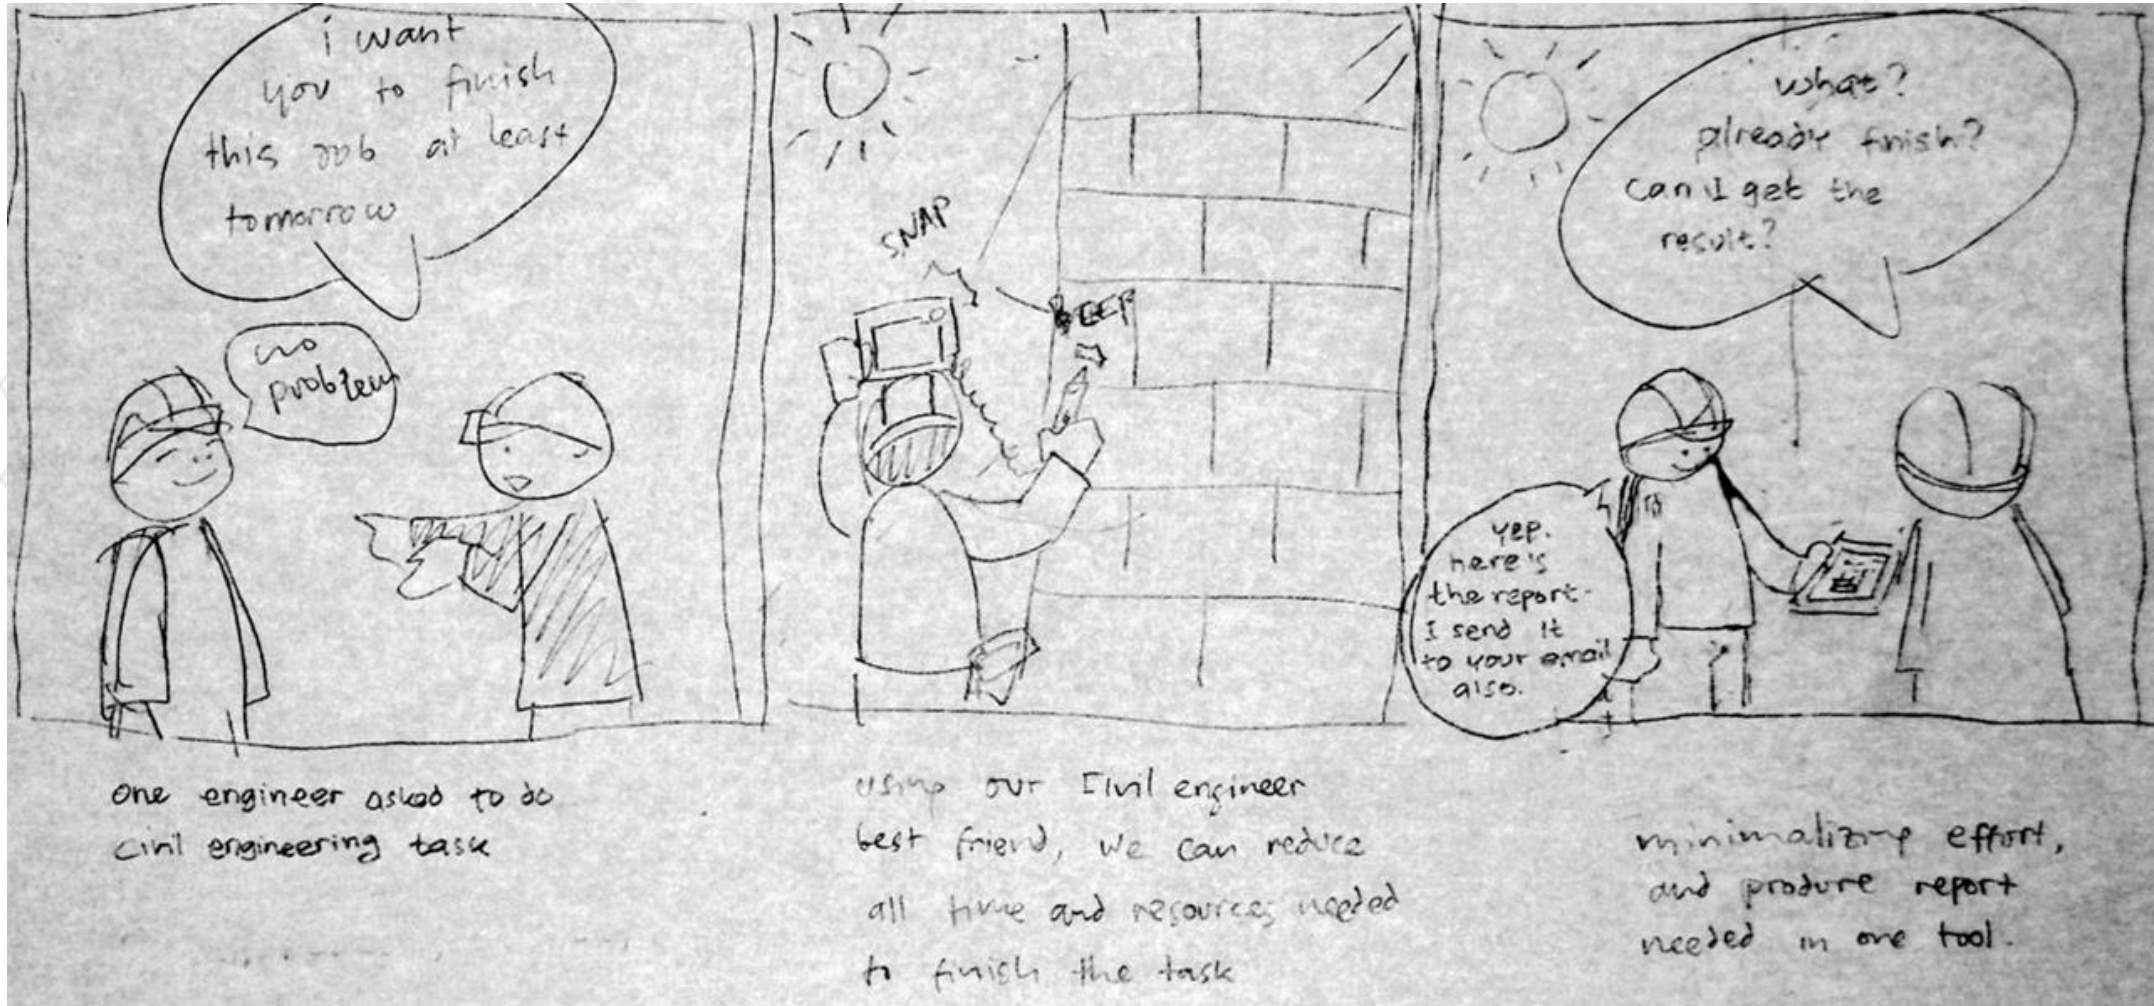 i want
you to finish
this job at least
tomorrow
no
problem
one engineer asked to do
civil engineering task
SNAP
using our Civil engineer
best friend, we can reduce
all time and resources needed
to finish the task
what?
already finish?
can I get the
result?
yep.
here's
the report.
I send it
to your email
also.
minimalizing effort,
and produre report
needed in one tool.